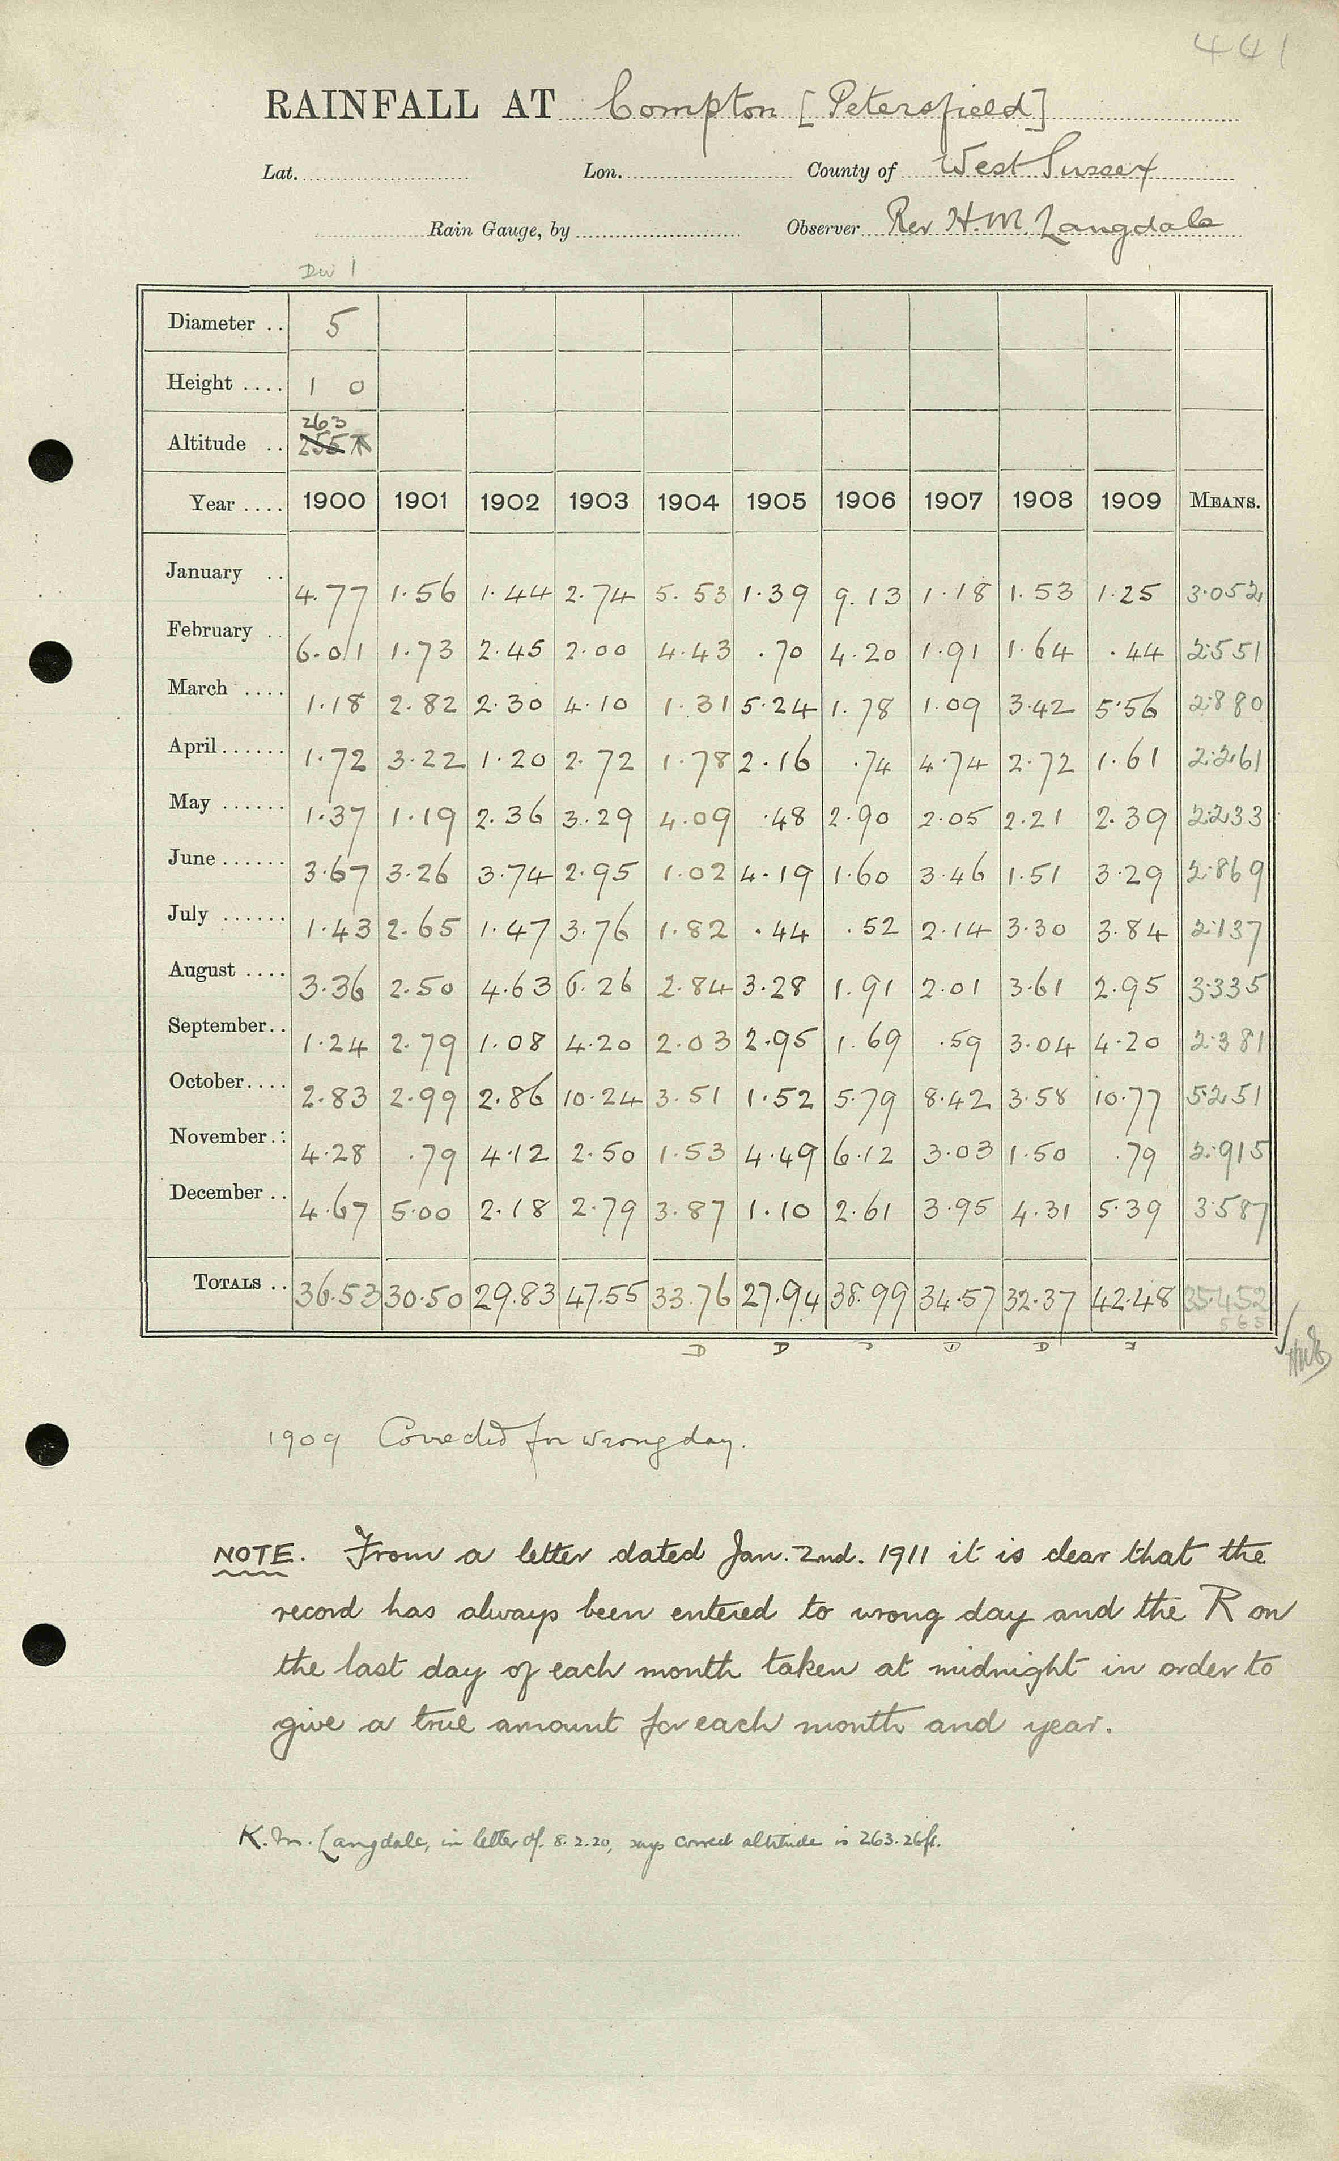 441
RAINFALL AT Compton [Petersfield]
Lat. Lon. County of West Sussex
Rain Gauge, by Observer Rev H.M. Langdale
Div 1
Diameter .. 5
Height .... 1 0
263
Altitude .. 255
Year .... 1900 1901 1902 1903 1904 1905 1906 1907 1908 1909 MEANS.
January .. 4.77 1.56 1.44 2.74 5.53 1.39 9.13 1.18 1.53 1.25 3.052
February .. 6.01 1.73 2.45 2.00 4.43 .70 4.20 1.91 1.64 .44 2.551
March .... 1.18 2.82 2.30 4.10 1.31 5.24 1.78 1.09 3.42 5.56 2.880
April...... 1.72 3.22 1.20 2.72 1.78 2.16 .74 4.74 2.72 1.61 2.261
May ...... 1.37 1.19 2.36 3.29 4.09 .48 2.90 2.05 2.21 2.39 2.233
June ...... 3.67 3.26 3.74 2.95 1.02 4.19 1.60 3.46 1.51 3.29 2.869
July ...... 1.43 2.65 1.47 3.76 1.82 .44 .52 2.14 3.30 3.84 2.137
August .... 3.36 2.50 4.63 6.26 2.84 3.28 1.91 2.01 3.61 2.95 3.335
September.. 1.24 2.79 1.08 4.20 2.03 2.95 1.69 .59 3.04 4.20 2.381
October.... 2.83 2.99 2.86 10.24 3.51 1.52 5.79 8.42 3.58 10.77 5.251
November.. 4.28 .79 4.12 2.50 1.53 4.49 6.12 3.03 1.50 .79 2.915
December .. 4.67 5.00 2.18 2.79 3.87 1.10 2.61 3.95 4.31 5.39 3.587
TOTALS .. 36.53 30.50 29.83 47.55 33.76 27.94 38.99 34.57 32.37 42.48 35.452
D D D D
1909 Corrected for wrong day.
NOTE. From a letter dated Jan. 2nd. 1911 it is clear that the
record has always been entered to wrong day and the R on
the last day of each month taken at midnight in order to
give a true amount for each month and year.
K.M. Langdale, in letter of 8.2.20, says correct altitude is 263.26ft.